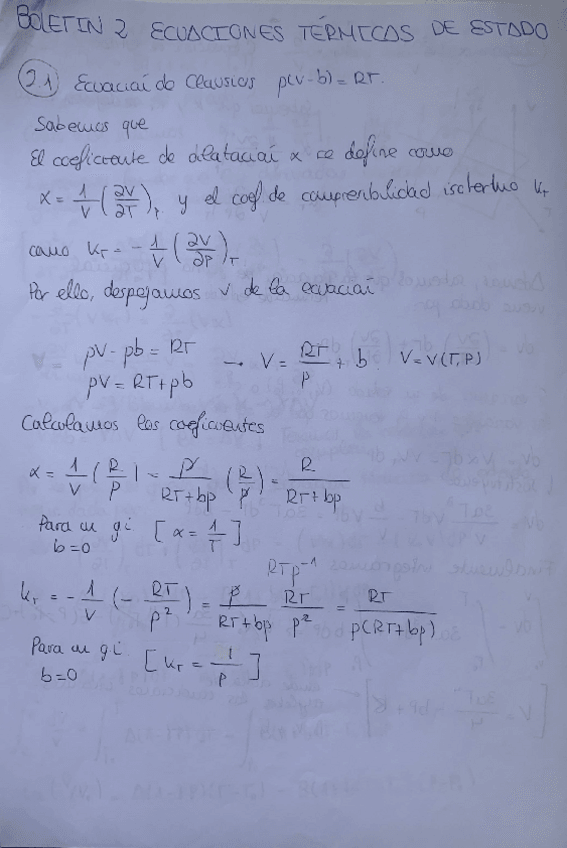 BOLETIN 2 ECUACIONES TÉRMICAS DE ESTADO
2.1 Ecuación de Clausius p(v-b) = RT.
Sabemos que
El coeficiente de dilatación α se define como
α = 1/V (∂V/∂T)p y el coef de compresibilidad isotermo KT
como KT = - 1/V (∂V/∂p)T
Por ello, despejamos v de la ecuación
pV - pb = RT
pV = RT + pb → V = RT/p + b V = V(T,P)
Calculamos los coeficientes
α = 1/V (R/p) = p/(RT+bp) (R/p) = R/(RT+bp)
Para un gi [α = 1/T]
b=0
RTp⁻¹
KT = - 1/V (- RT/p²) = p/(RT+bp) RT/p² = RT/(p(RT+bp))
Para un gi [KT = 1/p]
b=0